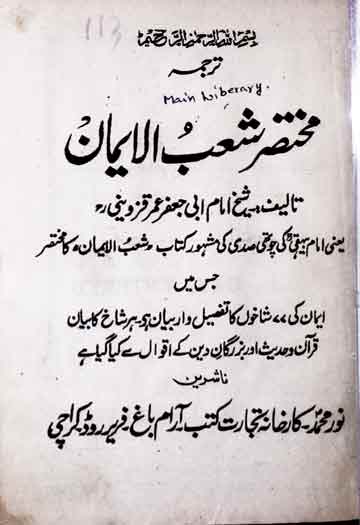 113
بسم اللہ الرحمن الرحیم
ترجمہ
Main Liberary.
مختصر شعب الایمان
تالیف :۔ شیخ امام ابی جعفر عمر قزوینی رح
یعنی امام بیہقی رح کی چوتھی صدی کی مشہور کتاب "شعب الایمان" کا مختصر
جس میں
ایمان کی ۷۷ شاخوں کا تفصیل وار بیان ہو۔ ہر شاخ کا بیان
قرآن و حدیث اور بزرگانِ دین کے اقوال سے کیا گیا ہے
ناشرین
نور محمد۔ کارخانہ تجارت کتب۔ آرام باغ۔ فریر روڈ کراچی